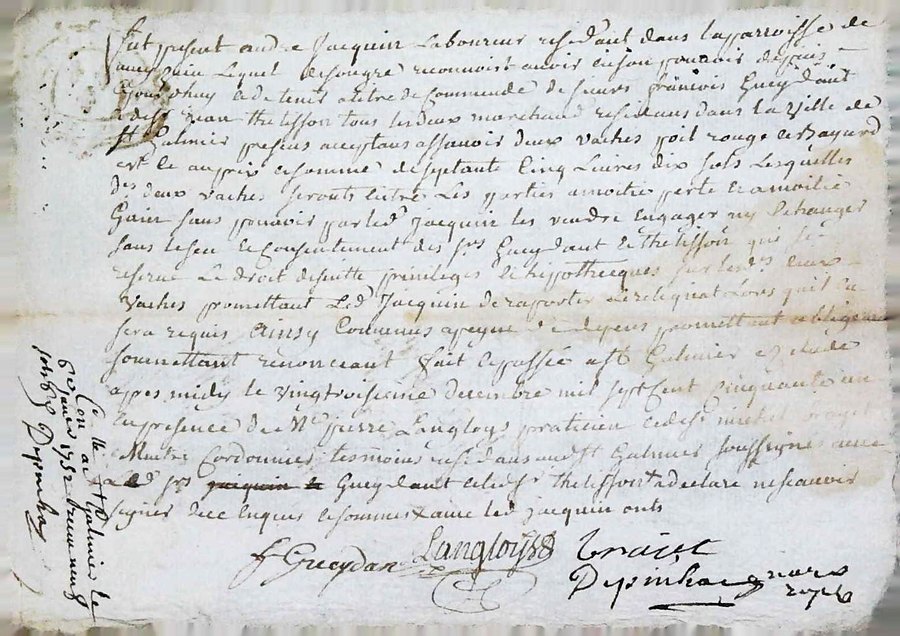 fut present andré Jacquin Laboureur residant dans la parroisse de
Lequel desongré reconnoist avoir enson pouvoir despuis
cejourdhuy et detenir atitre de Commande de sieurs françois Gueydant
et de sr jean thelisson tous lesdeux marchand residens dans la Ville de
st Galmier presens acceptans assavoir deux vaches poil rouge et Bayard
et ce auprix et somme de septante Cinq Livres dix sols Lesquelles
des deux vaches seronts entre Les parties amoitié perte et amoitié
Gain sans pouvoir parled Jacquin les vendre Engager ny Echanger
sans leseu et Consentement des srs Gueydant et thelisson qui se
reserve Le droit de suitte privileges et hipothecques sur lesds deux
vaches promettant Led Jacquin deraporter Lors quil en
sera requis Ainsy Convenus apeyne de depens promettant obligeant
soumettant renonceant fait et passée a st Galmier estude
apres midy le vingtroisieme decembre mil sept Cent Cinquante un
En presence de Me pierre Langloys praticien et de sr michel trajet
Maitre Cordonnier temoins residans aud st Galmier soussignes avec
led srs jacquin et Gueydant et led sr thelisson a declaré nescavoir
signer de ce Enquis et sommé avec led jacquin onts
f Gueydan Langloys trajet
Depinhac nore
royal
Con a st Galmier le
6 janer 1752 Receu neuf
sols Depinhac